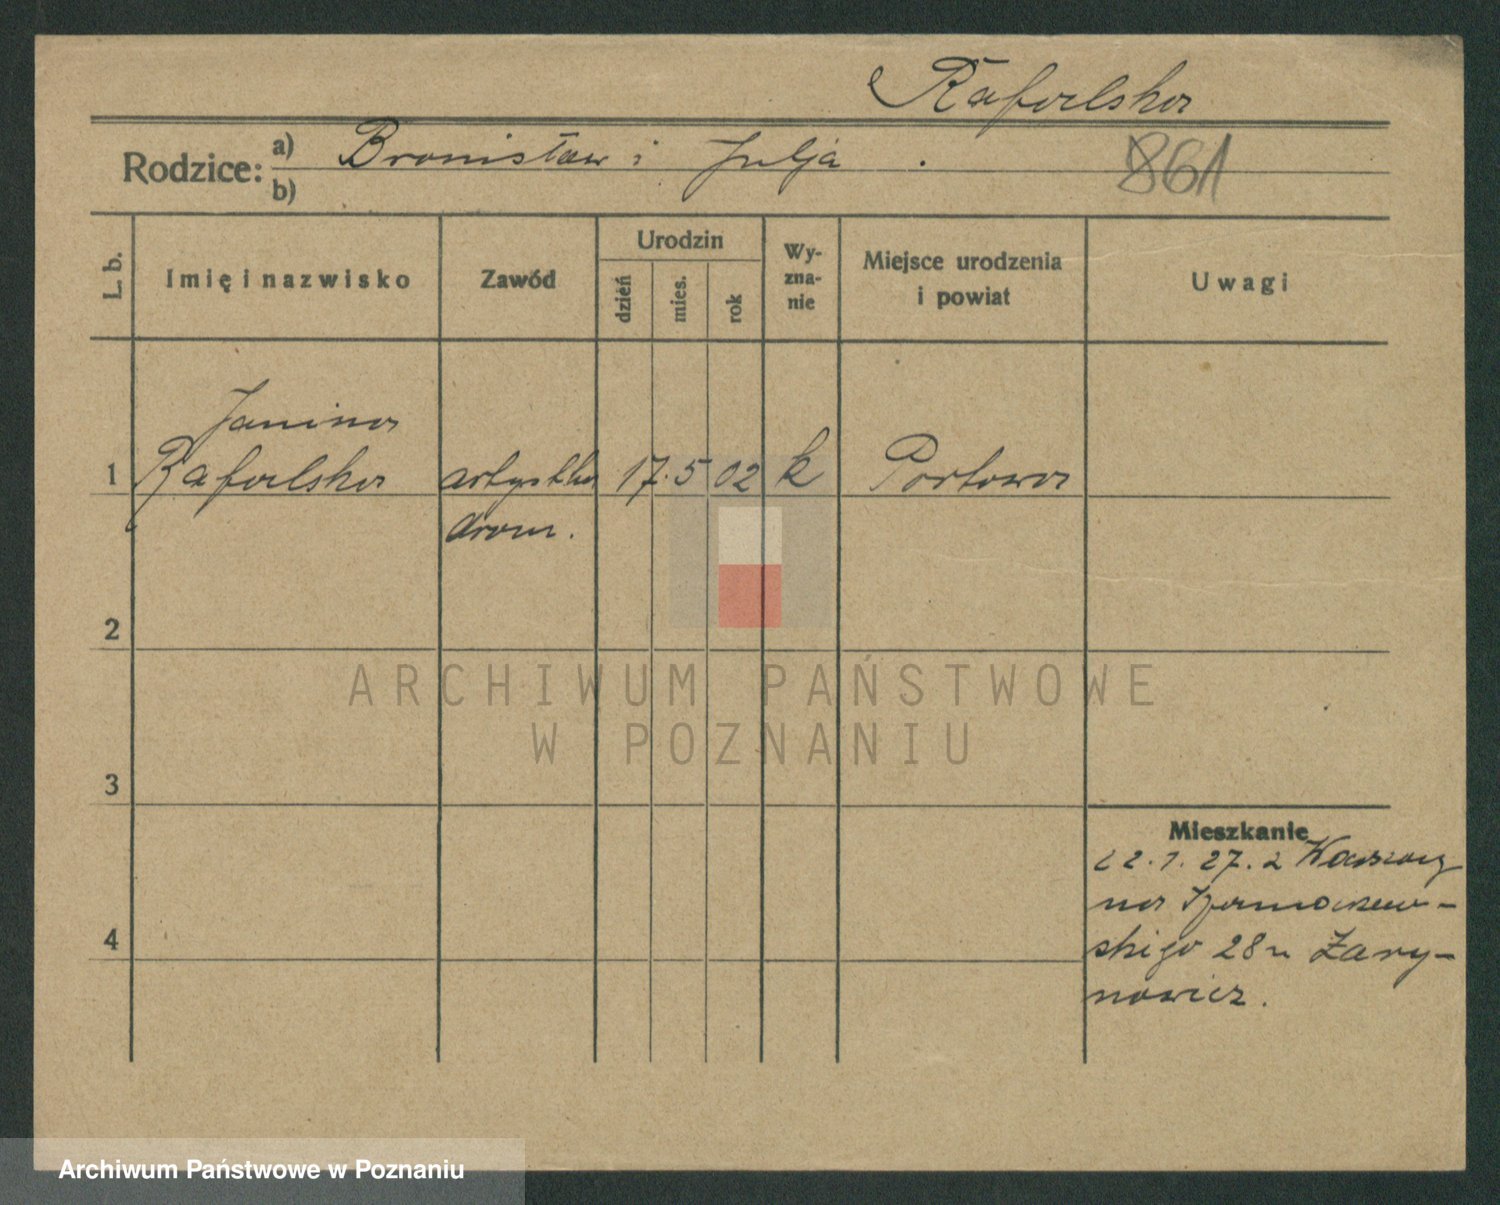 Rafalska
Rodzice: a) Bronisław i Julja .
b)
861
L. b. Imię i nazwisko Zawód Urodzin dzień mies. rok Wy-zna-nie Miejsce urodzenia i powiat Uwagi
Janina
1 Rafalska artystka 17. 5 02 k Portowa
dram.
2
ARCHIWUM PAŃSTWOWE
W POZNANIU
3
Mieszkanie
22. 1. 27. z Warszawy
na
4
skiego 28 u Żary-
nowicz.
Archiwum Państwowe w Poznaniu